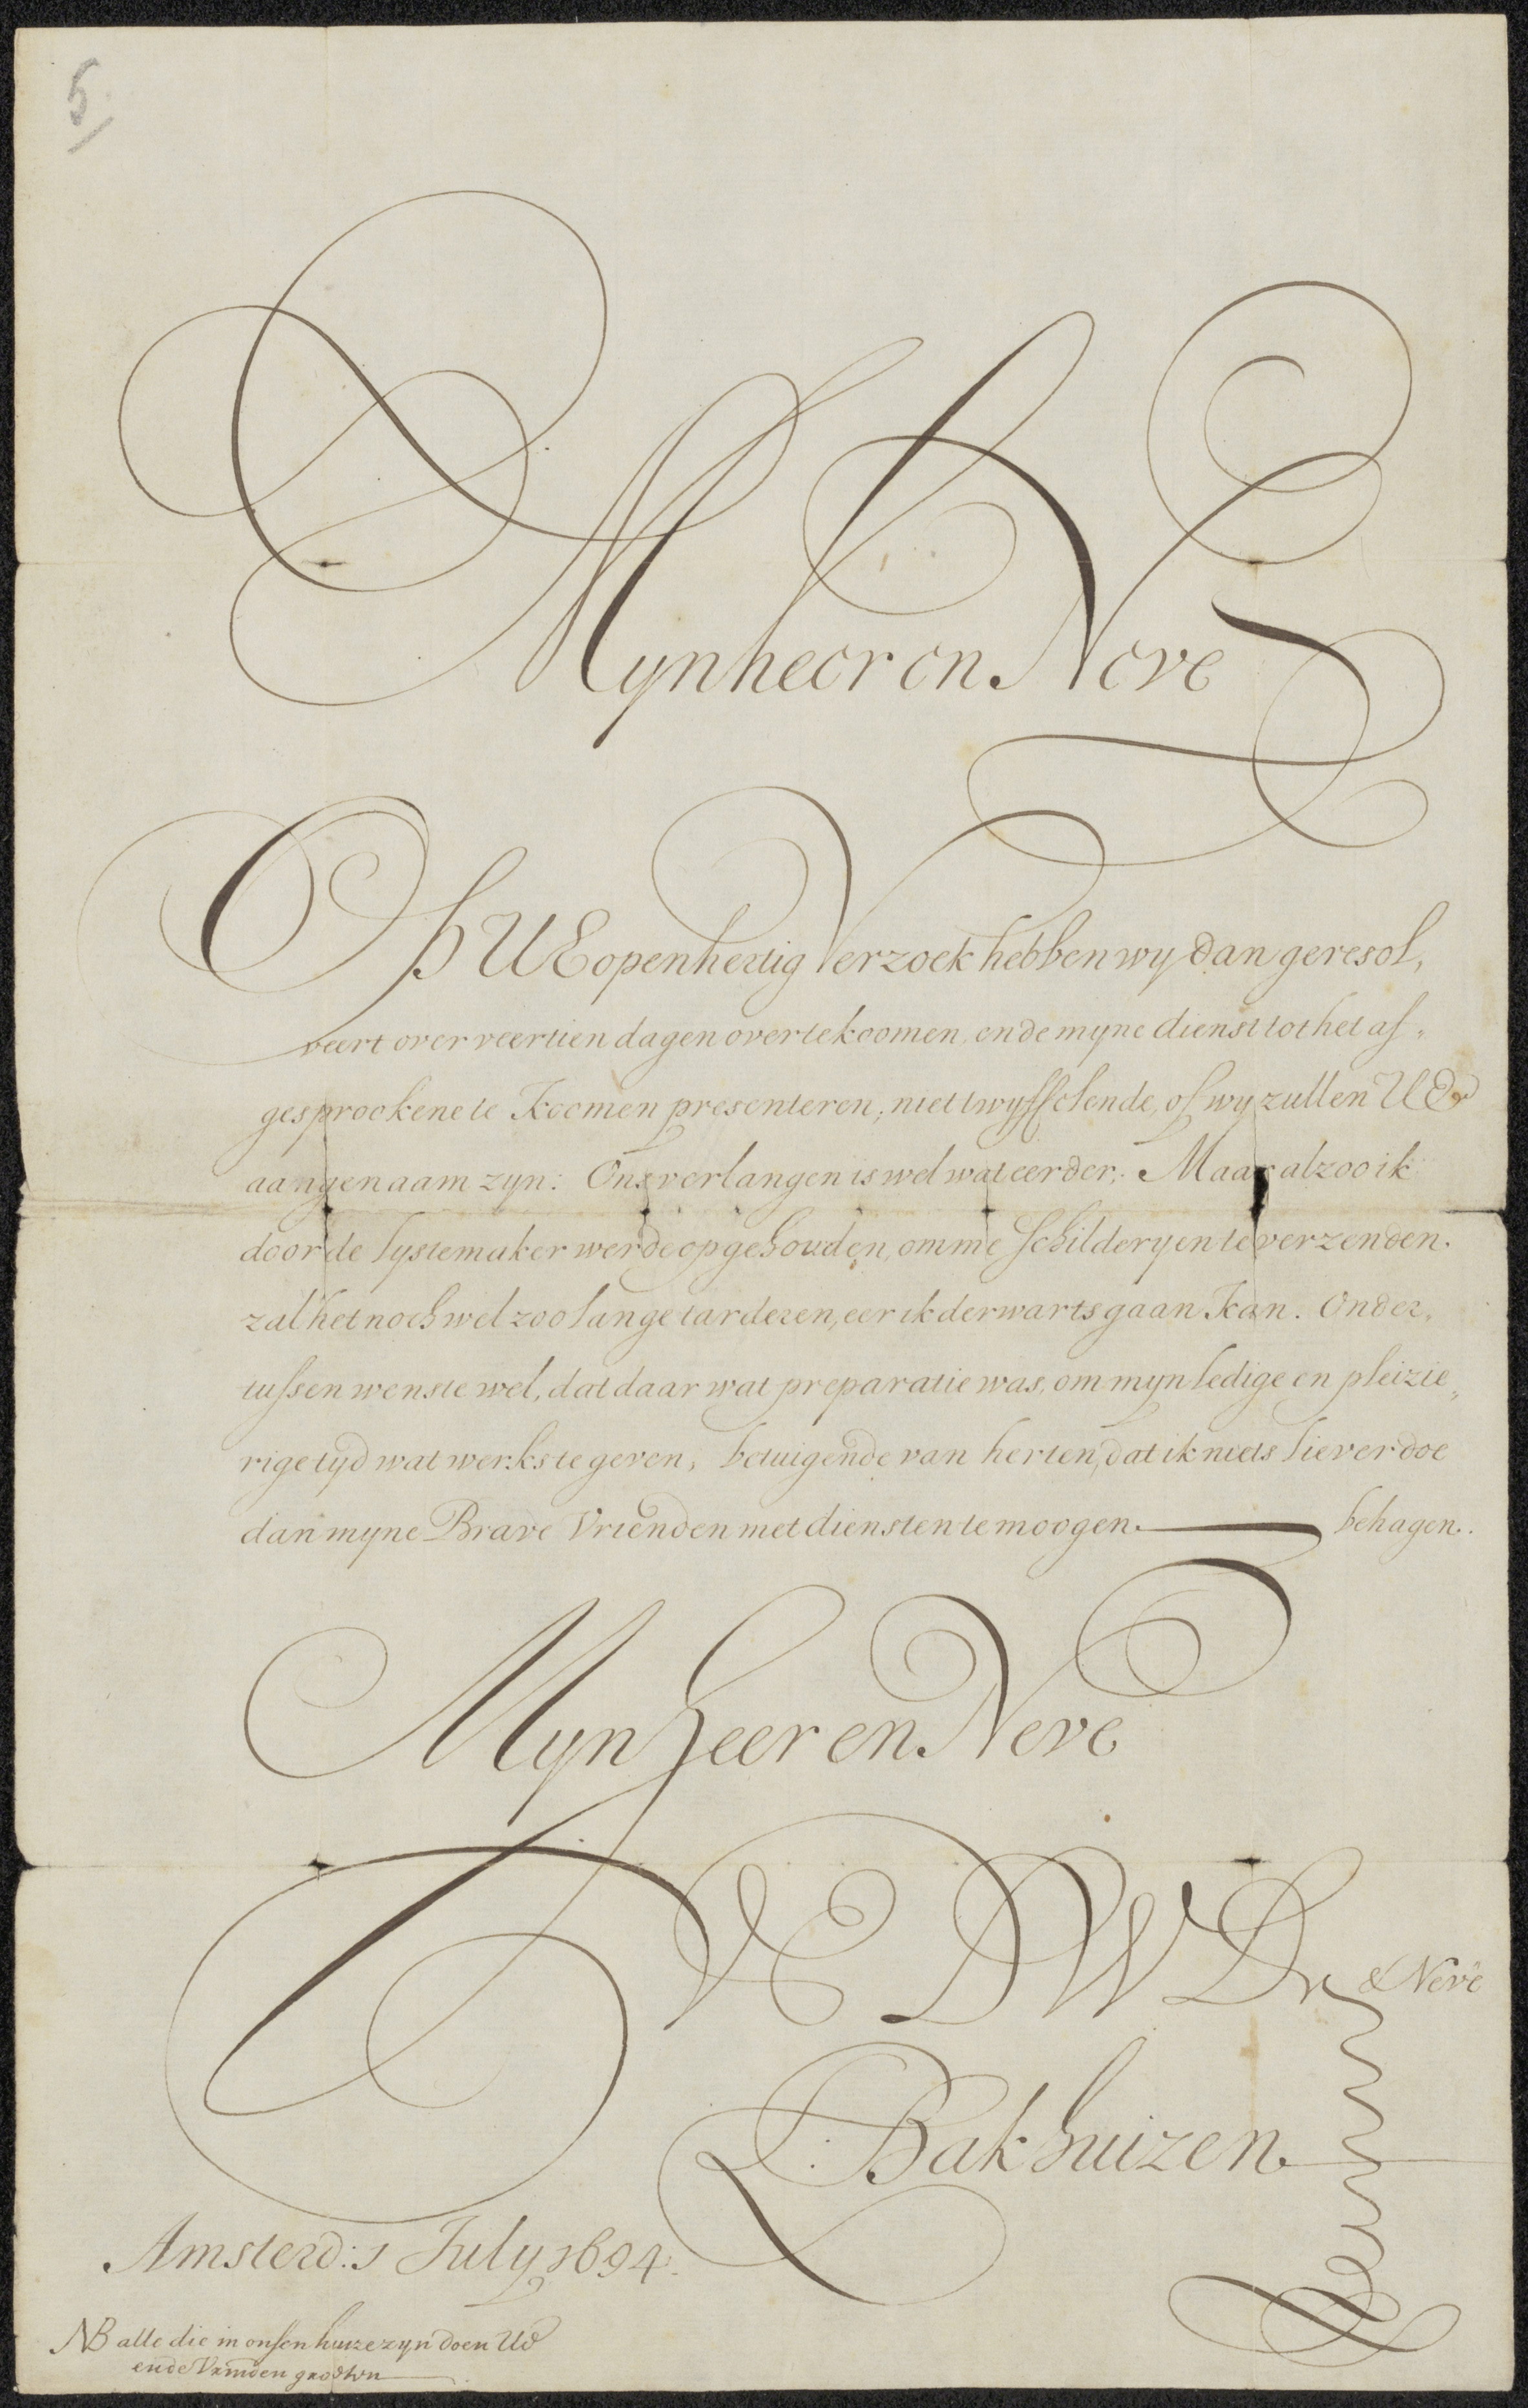 5
Mynheer en Neve
Op UE openhertig Verzoek hebben wy dan geresol,
veert over veertien dagen over te koomen, ende myne dienst tot het af,
gesprookene te koomen presenteren; niet twyffelende, of wy zullen UE
aangenaam zyn: Ons verlangen is wel wat eerder; Maar alzoo ik
door de lystemaker werde opgehouden, omme schilderyen te verzenden.
zal het noch wel zoo lange tarderen, eer ik derwarts gaan kan. Onder,
tussen wenste wel, dat daar wat preparatie was, om myn ledige en pleizie,,
rige tyd wat werks te geven, betuigende van herten, dat ik niets liever doe
dan myne Brave Vrienden met diensten te moogen. behagen.
Myn heer en Neve
UE DW Dr & Neve
L: Bakhuizen
Amsterd: 1 July 1694.
NB alle die in onsen huize zyn doen UE
ende Vrinden groeten